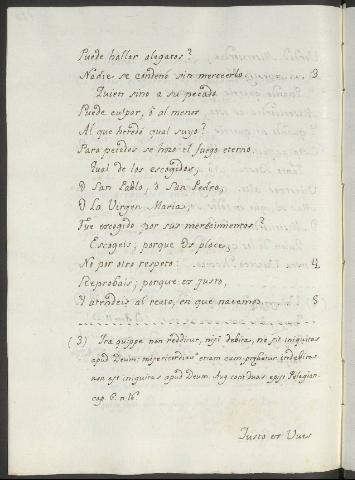 Puede hallar alegatos?
Nadie se condenó sin merecerlo. 3
Quien sino a su pecado
Puede culpar, ó al menos
Al que heredó qual suyo?
Para pecados se hizo el fuego eterno.
Qual de los escogidos,
O San Pablo, o San Pedro,
O La Vergen Maria
Fue escogido por sus merecimientos?
Escogeis, porque os place,
No por otro respeto: 4
Reprobais; porque es justo,
Y atendeis al reato, en que nacemos. 5
(3) Ira quippe non redditur, nisi debita, ne sit iniquitas
apud Deum: misericordia etiam cum prębetur indebita
non est iniquitas apud Deum. Aug. cont. duas epist. Pelagian.
cap. 6. n. 16.
Justo es Vues